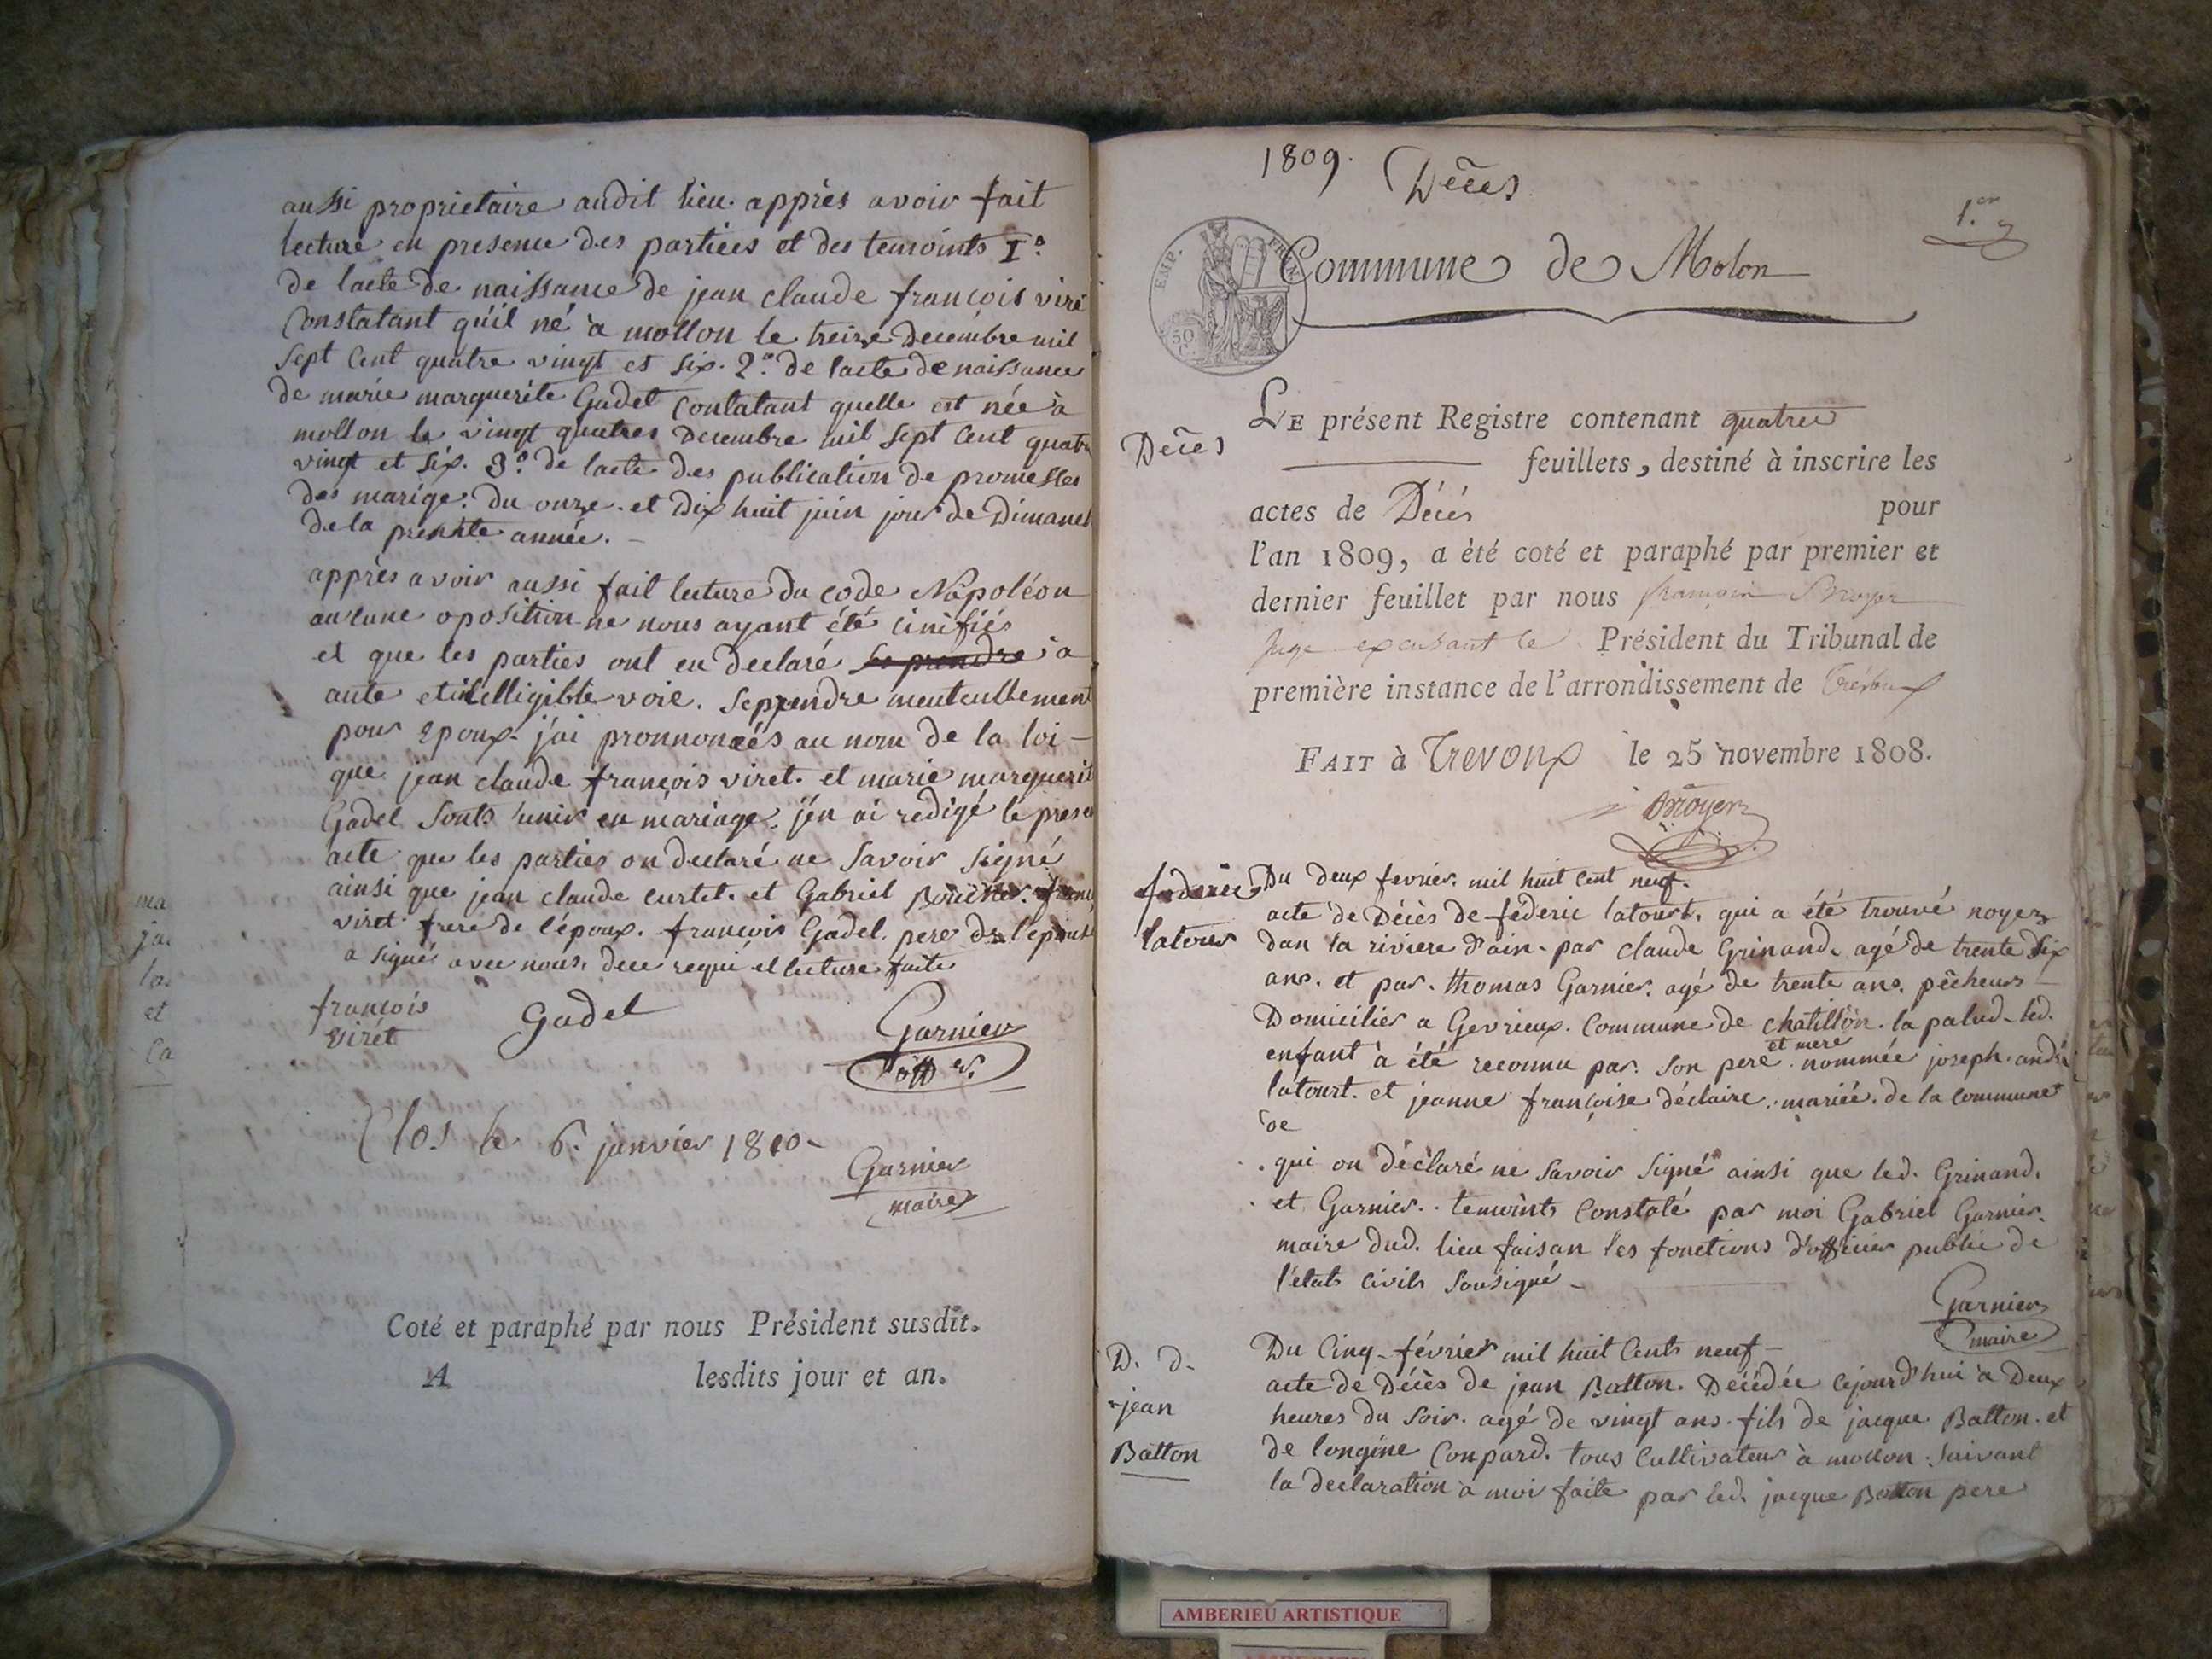 aussi proprietaire audit lieu. apprès avoir fait
lecture en presence des partiees et des temoints 1°.
de lacte de naissance de jean claude françois viré
Constatant quil né a mollon le treize decembre mil
sept Cent quatre vingt et six. 2°. de lacte de naissance
de marie marguerite Gadet Contatant quelle est née à
mollon le vingt quatres decembre mil sept Cent quatre
vingt et six. 3°. de lacte des publication de promesses
des marige. du onze. et Dix huit juin jour de Dimanch
de la année. -
apprès avoir aussi fait lecture du code Napoléon
aucune oposition ne nous ayant été
et que les parties ont eu declaré se prendre a
aute et intelligible voie. se
pour epoux. j'ai au nom de la loi -
que jean claude françois viret. et marie marguerit
Gadel Sonts unir en màriage. j'en ai redigé le prese
acte que les parties on declaré ne Savoir signé
ainsi que jean claude curtet. et Gabriel
viret frere de l'époux. françois Gadel. pere de l'epouse
a signés avec nous. dece requi et lecture faite
françois Gadel Garnier
virét off er.
Clos le 6. janvier 1810-
Garnier
maire
Coté et paraphé par nous Président susdit.
A lesdits jour et an.
1809. Décès
1.er
EMP. FRAN
50
Commune de Molon
LE présent Registre contenant quatre
Décès
feuillets, destiné à inscrire les
actes de Décés pour
l'an 1809, a été coté et paraphé par premier et
dernier feuillet par nous françois
juge Président du Tribunal de
première instance de l'arrondissement de Trévoux
FAIT à Trevoux le 25 novembre 1808.
federic Du deux fevrier. mil huit Cent neuf.
acte de Décès de federic latourt. qui a été trouvé noyer
latour dan la riviere d'ain. par claude Grinand. agé de trente six
ans. et par. thomas Garnier. agé de trente ans. pêcheurs -
Domicilier a Gevrieux. Commune de chatillon. la palud. led.
et mere
enfant à été reconnu par. son pere. nommée joseph. andré
latourt. et jeanne françoise déclaire. mariée. de la commune
de
. qui on déclaré ne Savoir Signé ainsi que led. Grinand.
et Garnier. . temoints Constaté par moi Gabriel Garnier.
maire dud. lieu faisan les fonctions d'officier public de
l'etats Civils Sousigné -
Garnier
maire
D. d. Du Cinq - février mil huit Cents neuf -
acte de Décès de jean Batton. Décédée cejourd'hui à Deux
jean heures du Soir. agé de vingt ans. fils de jacque Batton. et
Batton de longine Conpard. tous Cultivateur à mollon. Suivant
la declaration à moi faite par led. jacque Batton pere
AMBERIEU ARTISTIQUE